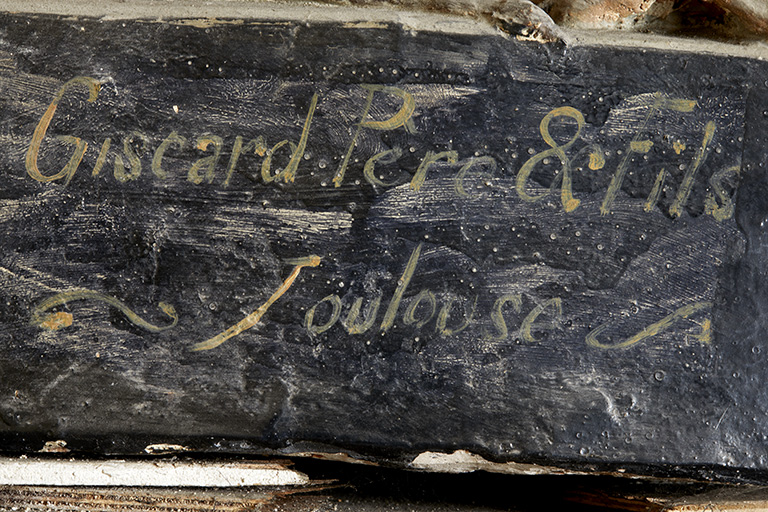 Giscard Père & Fils
Toulouse